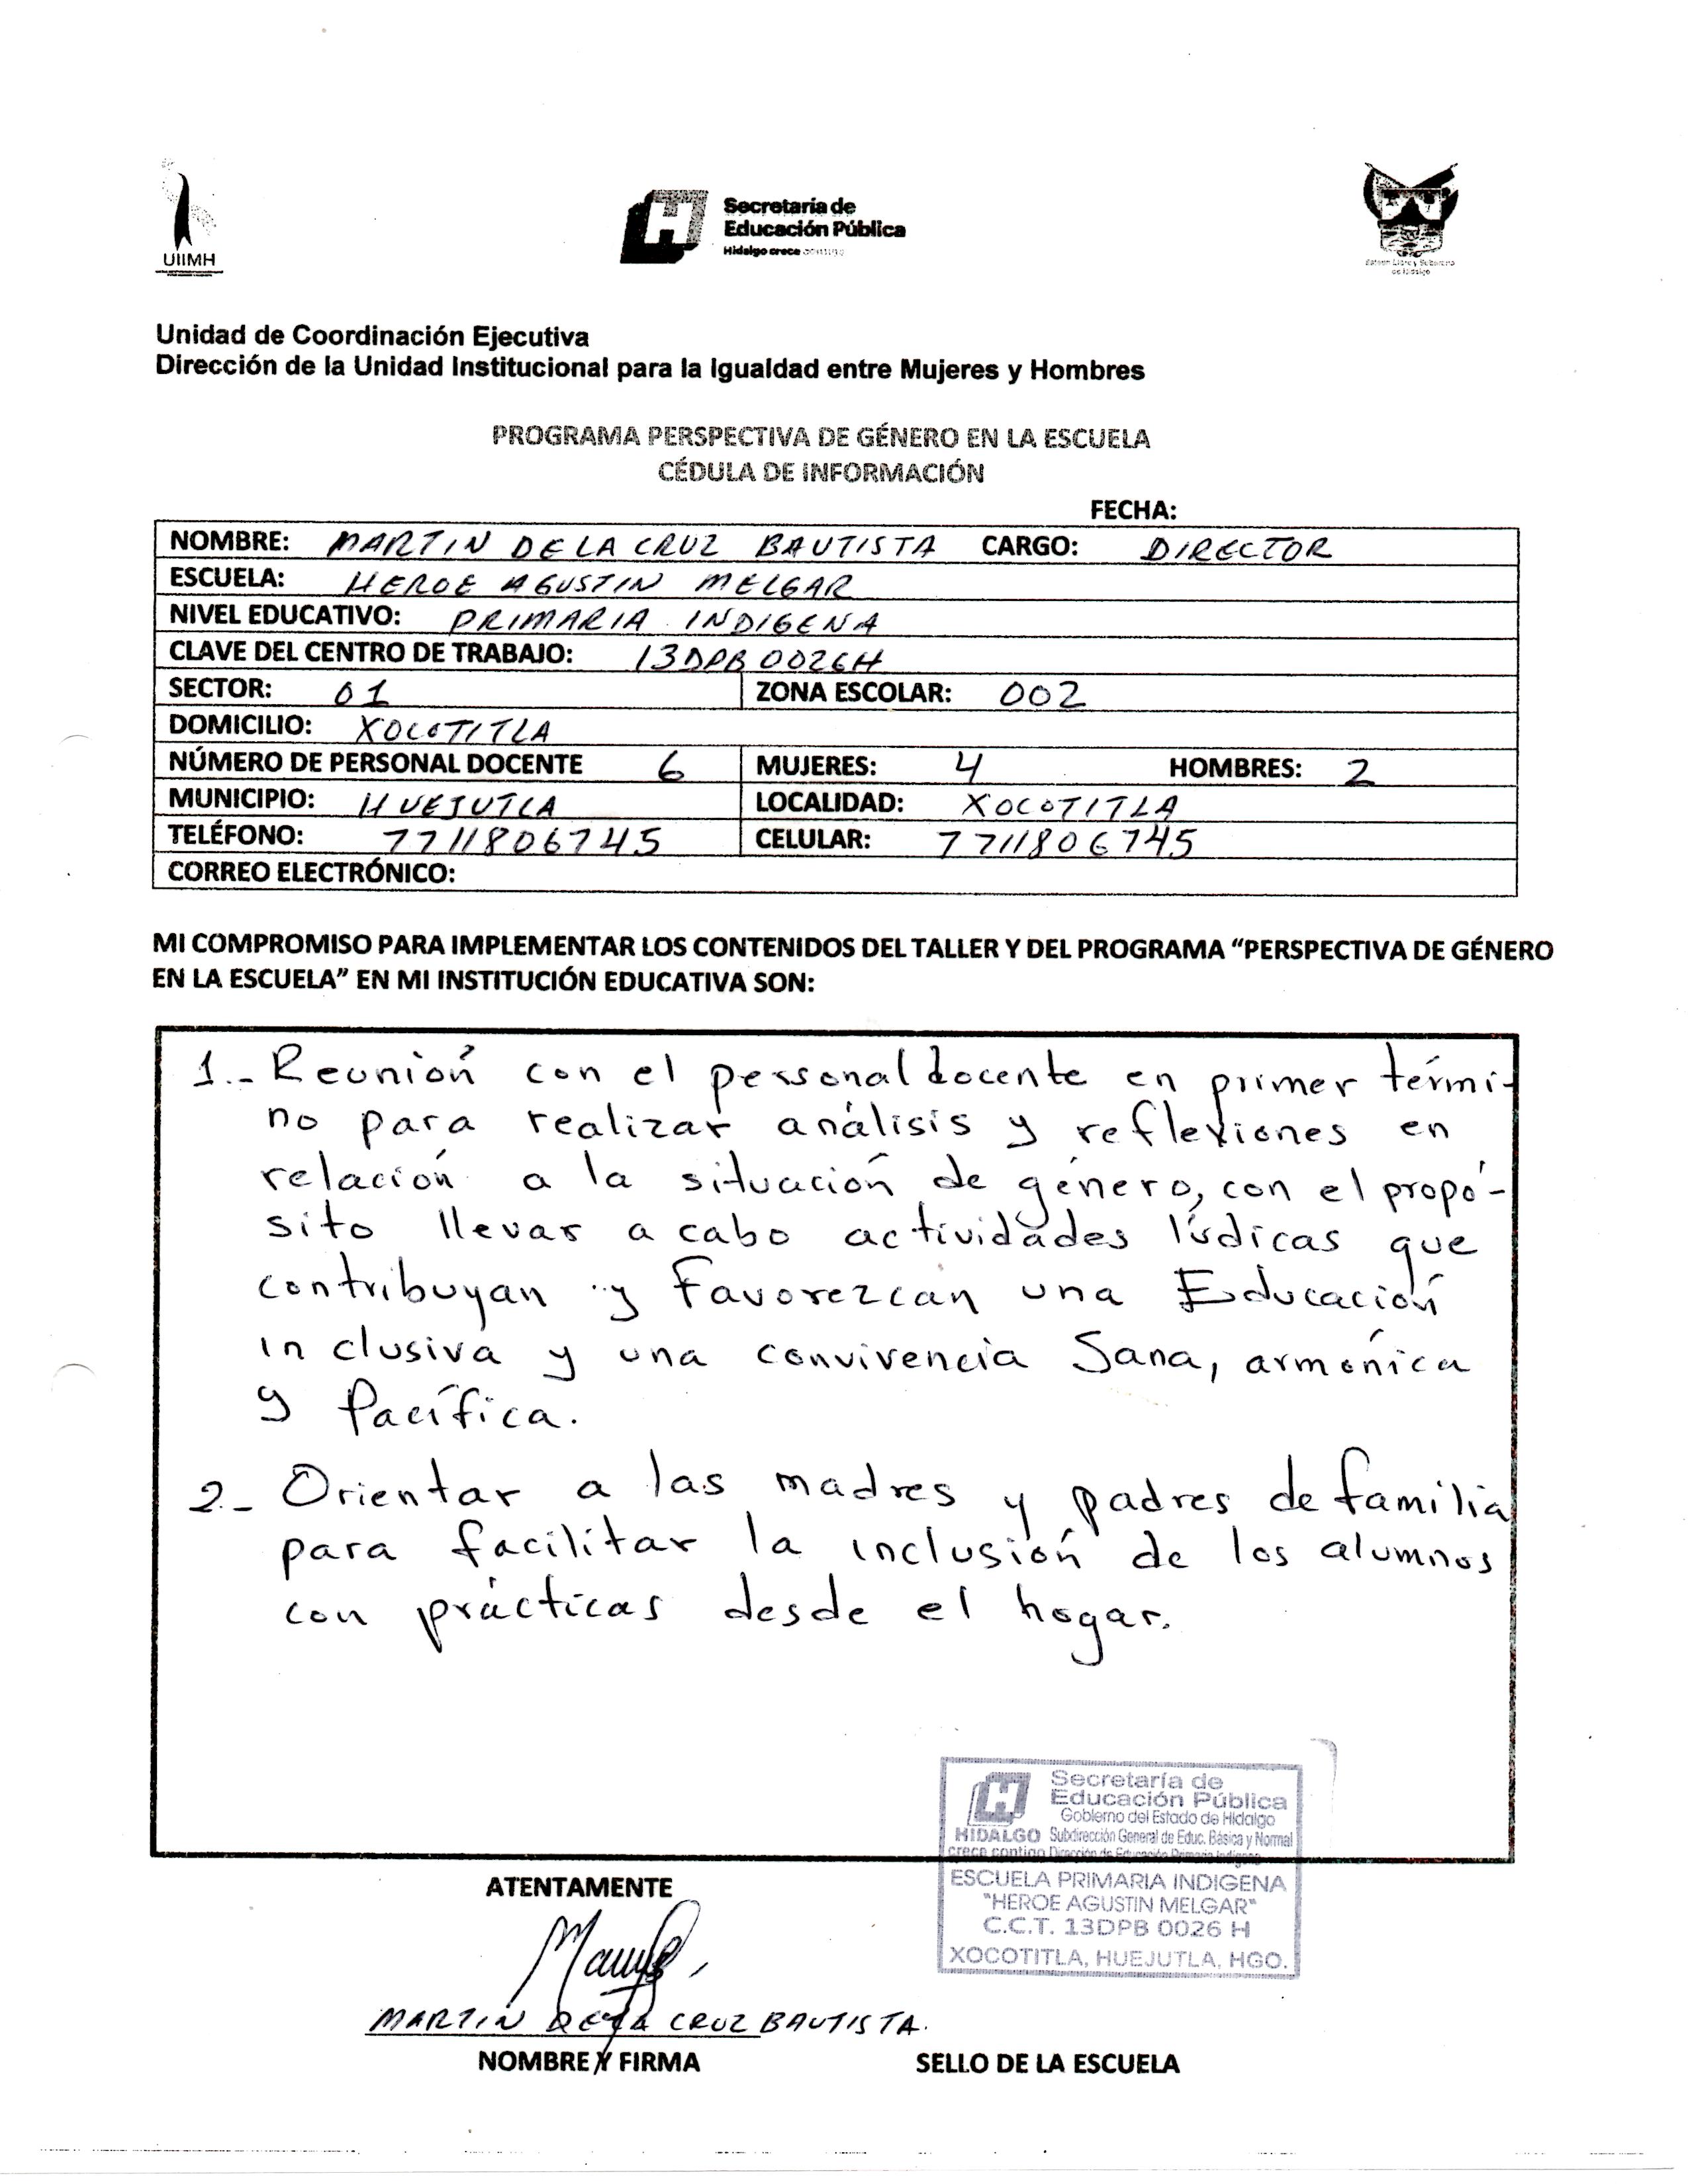 UIIMH
Secretaría de
Educación Pública
Hidalgo crece contigo
Estado Libre y Soberano
de Hidalgo
Unidad de Coordinación Ejecutiva
Dirección de la Unidad Institucional para la Igualdad entre Mujeres y Hombres
PROGRAMA PERSPECTIVA DE GÉNERO EN LA ESCUELA
CÉDULA DE INFORMACIÓN
FECHA:
NOMBRE: MARTIN DE LA CRUZ BAUTISTA CARGO: DIRECTOR
ESCUELA: HEROE AGUSTIN MELGAR
NIVEL EDUCATIVO: PRIMARIA INDIGENA
CLAVE DEL CENTRO DE TRABAJO: 13DPB0026H
SECTOR: 01 ZONA ESCOLAR: 002
DOMICILIO: XOCOTITLA
NÚMERO DE PERSONAL DOCENTE 6 MUJERES: 4 HOMBRES: 2
MUNICIPIO: HUEJUTLA LOCALIDAD: XOCOTITLA
TELÉFONO: 7711806745 CELULAR: 7711806745
CORREO ELECTRÓNICO:
MI COMPROMISO PARA IMPLEMENTAR LOS CONTENIDOS DEL TALLER Y DEL PROGRAMA “PERSPECTIVA DE GÉNERO
EN LA ESCUELA” EN MI INSTITUCIÓN EDUCATIVA SON:
1.- Reunión con el personal docente en primer térmi-
no para realizar análisis y reflexiones en
relación a la situación de género, con el propó-
sito llevar a cabo actividades lúdicas que
contribuyan y favorezcan una Educación
inclusiva y una convivencia Sana, armónica
y Pacífica.
2.- Orientar a las madres y padres de familia
para facilitar la inclusión de los alumnos
con prácticas desde el hogar.
Secretaría de
Educación Pública
Gobierno del Estado de Hidalgo
HIDALGO Subdirección General de Educ. Básica y Normal
crece contigo Dirección de Educación Primaria Indígena
ESCUELA PRIMARIA INDIGENA
"HEROE AGUSTIN MELGAR"
C.C.T. 13DPB 0026 H
XOCOTITLA, HUEJUTLA, HGO.
ATENTAMENTE
MARTIN DE LA CRUZ BAUTISTA.
NOMBRE Y FIRMA SELLO DE LA ESCUELA